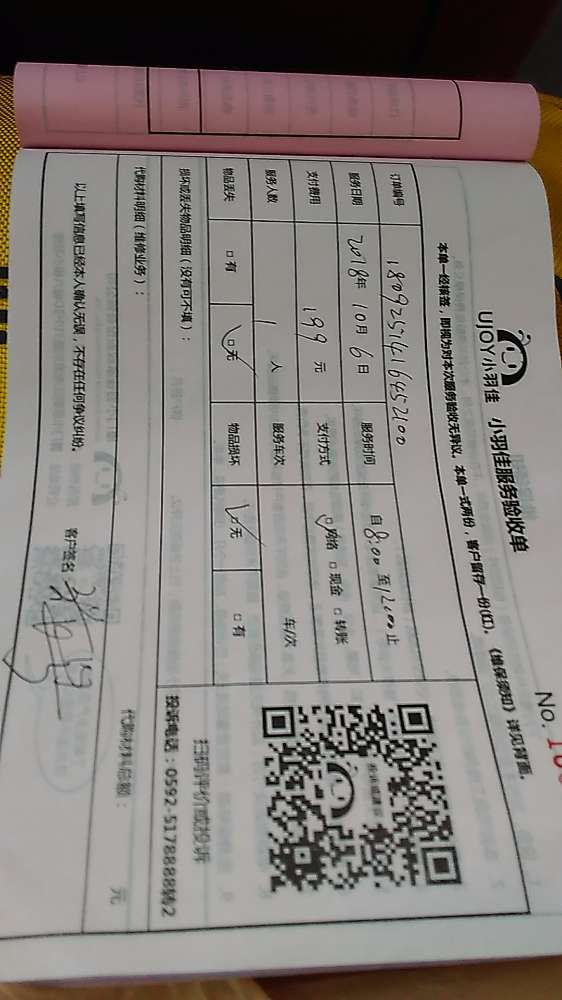 No. 1
UJOY小羽佳 小羽佳服务验收单
本单一经核签，即视为对本次服务验收无异议。本单一式两份，客户留存一份(红)。《维保须知》详见背面。
订单编号 1809251416452100
服务日期 2018年 10月 6日 服务时间 自 8:00 至 12:00 止
支付费用 199 元 支付方式 □网络 □现金 □转账
服务人数 1 人 服务车次 车/次
物品丢失 □有 □无 物品损坏 □无 □有
损坏或丢失物品明细（没有可不填）：
扫码评价或投诉
投诉电话：0592-5178888转2
代购材料明细（维修业务）： 代购材料总额： 元
以上填写信息已经本人确认无误，不存在任何争议纠纷。 客户签名